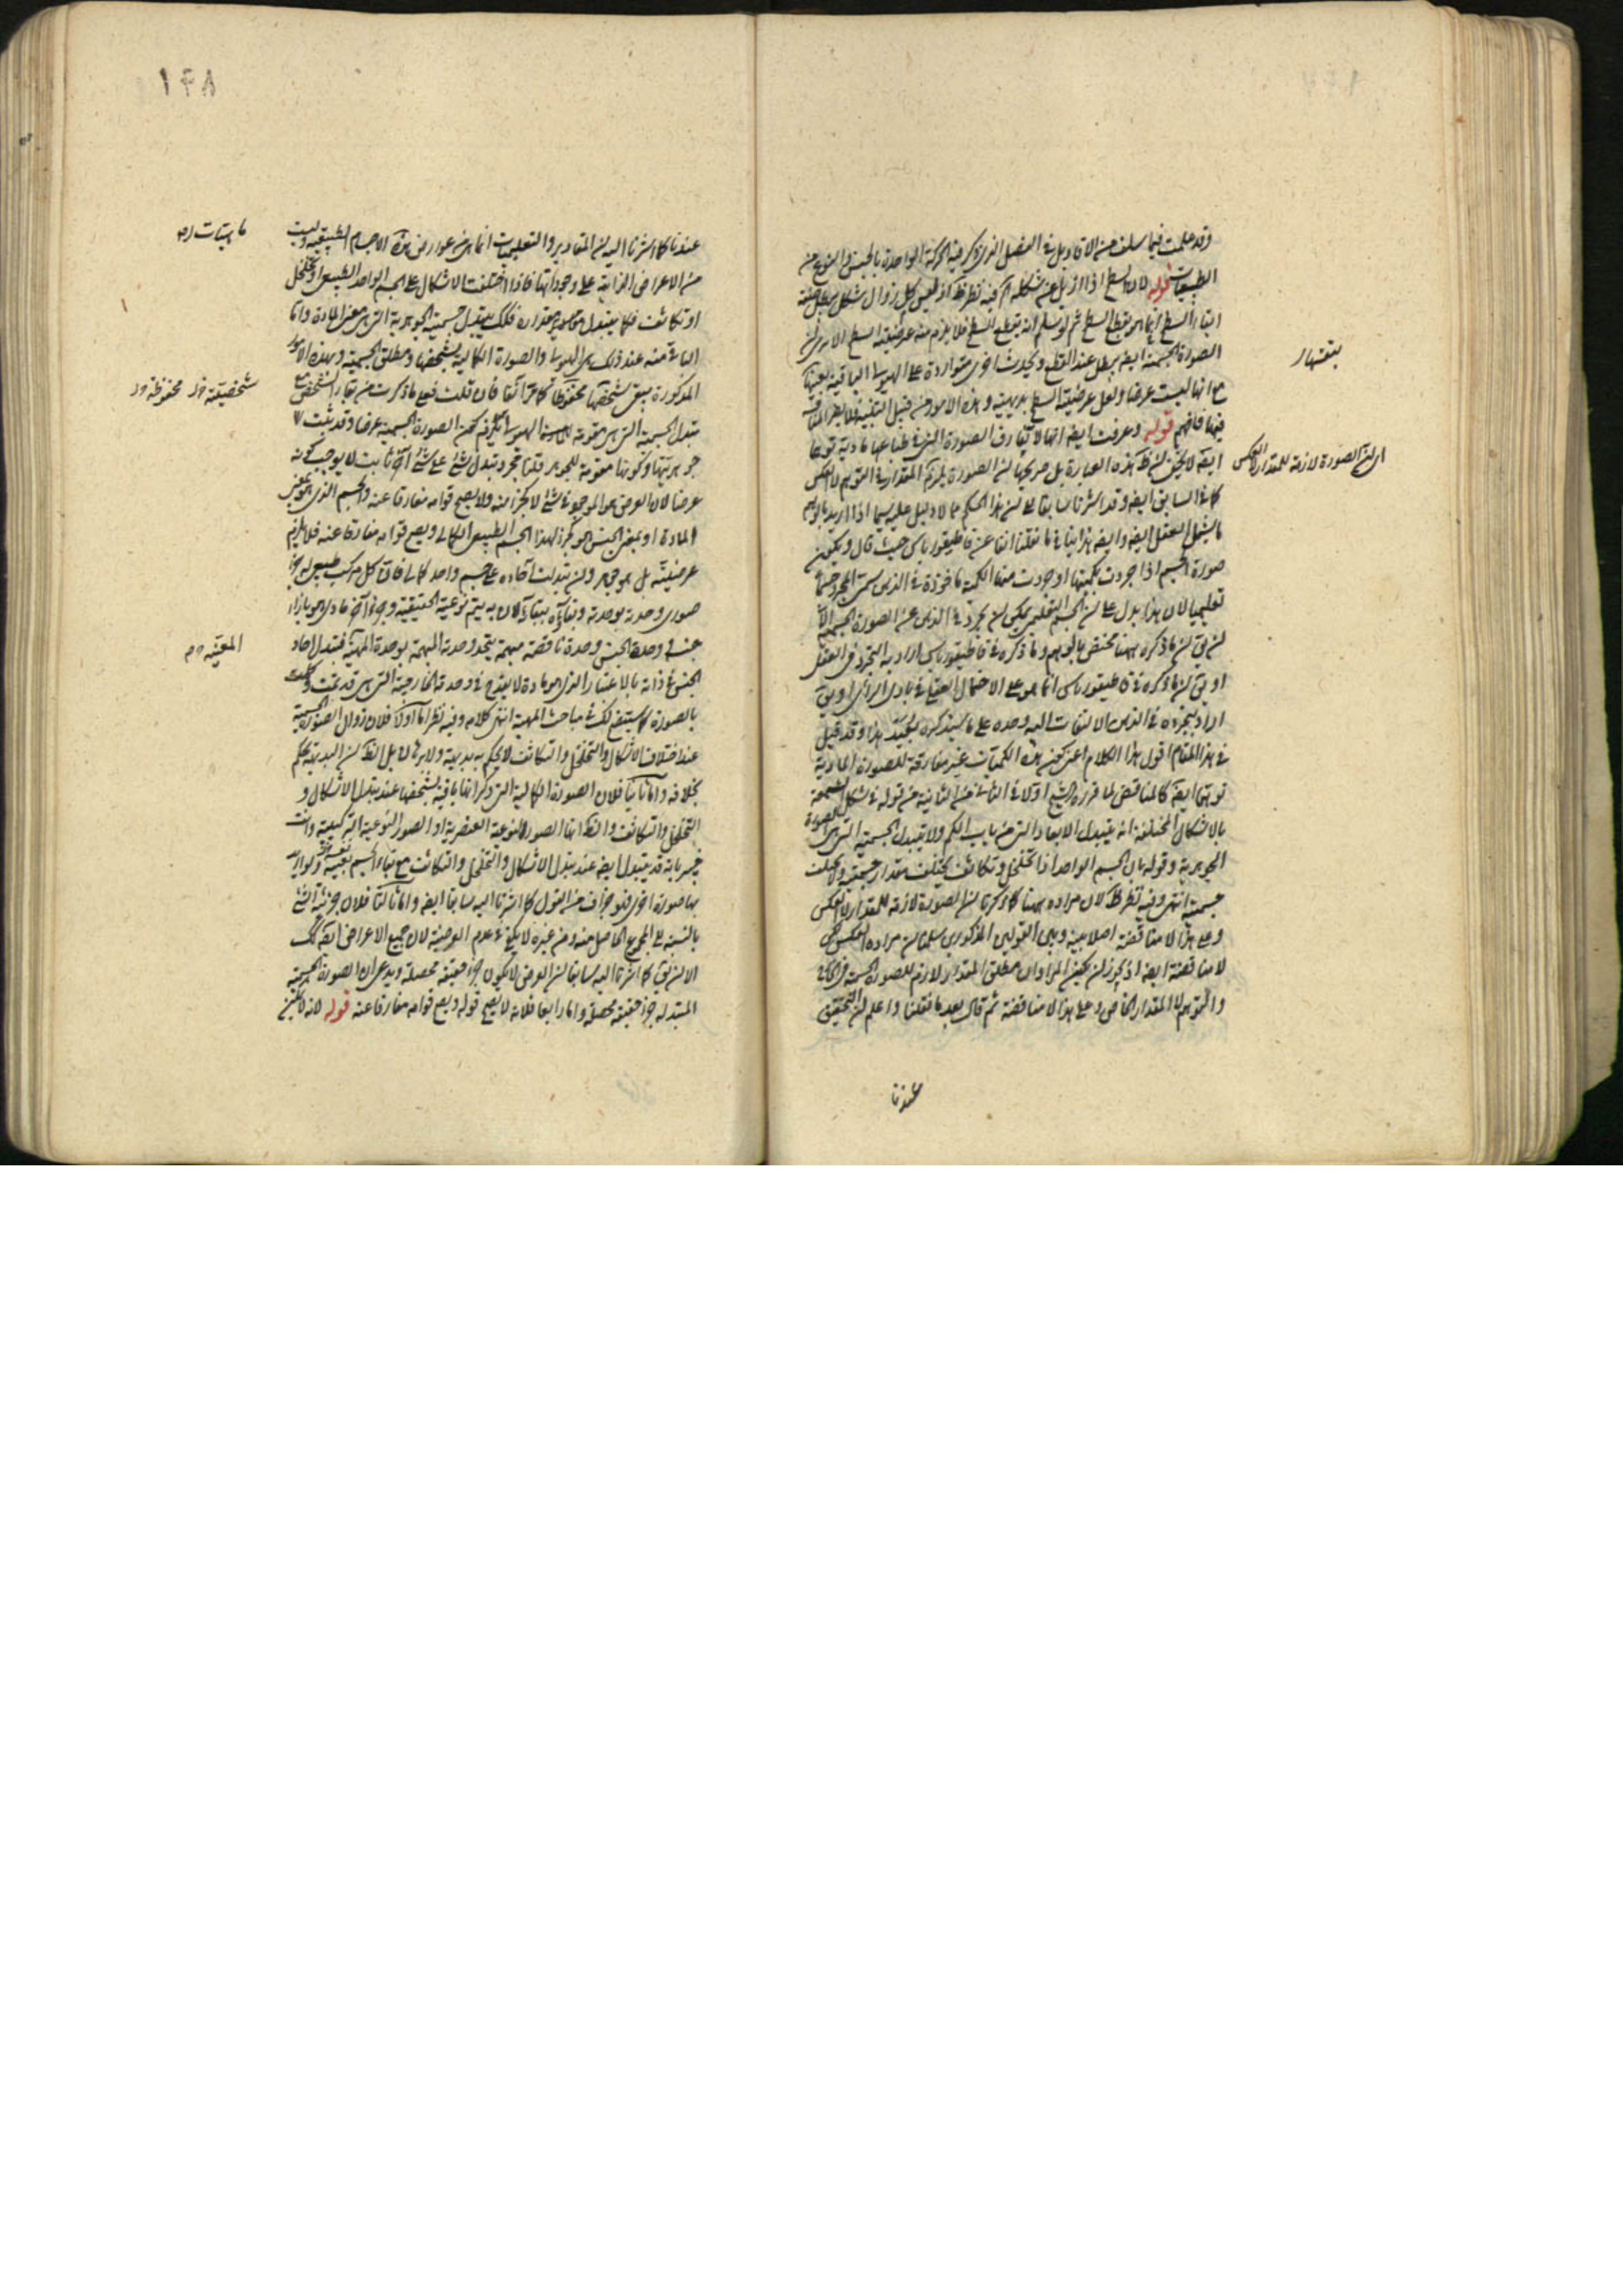 وقد علمت فيما سلف من الاقاويل في الفصل الذي ذكر فيه الحركة الواحدة بالجنس والنوع من
الطبيعيات قوله لان السطح اذا ازيل عن شكله اه فيه نظر ظ اذ ليس كل زوال شكل يبطل
اتصال السطح انما هو بقطع السطح ثم لو سلم انه يقطع السطح فلا يلزم منه عرضية السطح الا يرى ان
الصورة الجسمية ايضا يبطل عند القطع ويحدث اخرى متواردة على الهيولى الباقية بعينها
مع انها ليست عرضا ولعل عرضية السطح بديهية وهذه الامور من قبيل التنبيه فلا يضر المناقشة
فيها فافهم قوله وعرفت ايضا انها لا تفارق الصورة التي في طباعها مادية توهما
ايضا لا يخفى ان هذه العبارة بل صريحها ان الصورة يلزم المقدار في التوهم لا العكس
كما في السابق ايضا وقد اشرنا سابقا الى ان هذا الحكم مما لا دليل عليه سيما اذا اريد بالوهم
ما يشمل العقل ايضا وايضا هذا ينافي ما نقلنا انفا عن قاطيغورياس حيث قال ويكون
صورة الجسم اذا جردت بكميتها او جردت منها الكمية ماخوذة في الذهن سمى المجرد جسما
تعليميا لان هذا يدل على ان الجسم التعليمي يمكن ان يجرد في الذهن عن الصورة الجسمية الا
ان يق ان ما ذكره ههنا مختص بالوهم وما ذكره في قاطيغورياس اراد به التجرد في العقل
او يق ان ما ذكره في قاطيغورياس انما هو على الاحتمال العقلي في بادي الراي او يق
اراد بتجرده في الذهن الالتفات اليه وحده على ما سيذكره بعيد هذا وقد قيل
في هذا المقام اقول هذا الكلام اعني كون هذه الكميات غير مفارقة للصورة المادية
توهما ايضا كالمناقض لما قرره الشيخ اولا في الثاني من الثانية من قوله في شكل الشمعة
بالاشكال المختلفة انه يتبدل الابعاد التي من باب الكم ولا يتبدل الجسمية التي هي الصورة
الجوهرية وقوله بان الجسم الواحد اذا تخلخل وتكاثف يختلف مقدار جسميته ولا يختلف
جسمية انتهى وفيه نظر ظ لان مراده ههنا كما ذكرنا ان الصورة لازمة للمقدار لا العكس
وعلى هذا لا مناقضة اصلا بينه وبين القولين المذكورين سلمنا ان مراده العكس لكن
لا مناقضة ايضا اذ يجوز ان يكون المراد ان مطلق المقدار لازم للصورة الجسمية في الخارج
والتوهم لا المقدار الخاص وعلى هذا لا مناقضة ثم قال بعد ما نقلنا واعلم ان التحقيق
بعينها ر
اي ان الصورة لازمة للمقدار لا العكس
عندنا
١٤٨
عندنا كما اشرنا اليه ان المقادير والتعليميات انما هي من عوارض هذه الاجسام الطبيعية وليست
من الاعراض الزايدة على وجوداتها فاذا اختلفت الاشكال على الجسم الواحد الطبيعي او تخلخل
او تكاثف فكما يتبدل مقداره فكك يتبدل جسميته الجوهرية التي هي بمعنى المادة وانما
الباقي منه عند ذلك هي الهيولى والصورة الكمالية بشخصها ومطلق الجسمية وبهذه الامور
المذكورة يبقى شخصها محفوظا كما مر آنفا فان قلت فعلى ما ذكرت من بقاء الشخص مع
تبدل الجسمية التي هي مقومة الهيولى يلزم كون الصورة الجسمية عرضا وقد ثبت
جوهريتها وكونها مقومة للجوهر قلنا مجرد تبدل شئ على شئ آخر ثابت لا يوجب كونه
عرضا لان العرض هو الموجود في شئ لا كجزء منه ولا يصح قوامه مفارقا عنه والجسم الذي بمعنى
المادة او بمعنى الجنس هو كجزء لهذا الجسم الطبيعي الكمالي ويصح قوامه مفارقا عنه فلا يلزم
عرضيته بل هو جوهر وان تبدلت آحاده على جسم واحد كمالي فان كل مركب طبيعي له جزء
صوري وحدته بوحدته وبقاؤه ببقاءه لان به يتم نوعيته الحقيقية وجزء آخر مادي هو بازاء
جنسه ووحدة الجنس وحدة ناقصة مبهمة يتحد وحدته المبهمة بوحدة المهية فتبدل آحاد
الجنس في ذاته بالاعتبار الذي هو مادة لا يقدح في وحدته الخارجية التي هي قد تمت وكملت
بالصورة كما سيتضح لك في مباحث المهية انتهى كلامه وفيه نظر اما اولا فلان زوال الصورة الجسمية
عند اختلاف الاشكال والتخلخل والتكاثف لا يحكم به بديهية ولا برهان بل الظ ان البديهة يحكم
بخلافه واما ثانيا فلان الصورة الكمالية التي ذكر انها باقية بشخصها عند تبدل الاشكال و
التخلخل والتكاثف والظ انها الصورة النوعية العنصرية او الصور النوعية التركيبية وانت
خبير بانه قد يتبدل ايضا عند تبدل الاشكال والتخلخل والتكاثف مع بقاء الجسم بعينه
بها صورة اخرى فهو جزاف من القول كما اشرنا اليه سابقا ايضا واما ثالثا فلان جزئية الشئ
بالنسبة الى المجموع الحاصل منه ومن غيره لا يكفي في عدم العرضية لان جميع الاعراض ايضا كك
الا ان يق كما اشرنا اليه سابقا ان العرض لا يكون جزء حقيقة محصلة ويدعى ان الصورة الجسمية
المتبدلة جزء حقيقة محصلة واما رابعا فلانه لا يصح قوله ويصح قوامه مفارقا عنه قوله لانه لا يمكن
شخصيته خ ل محفوظة خ ل
المعينة